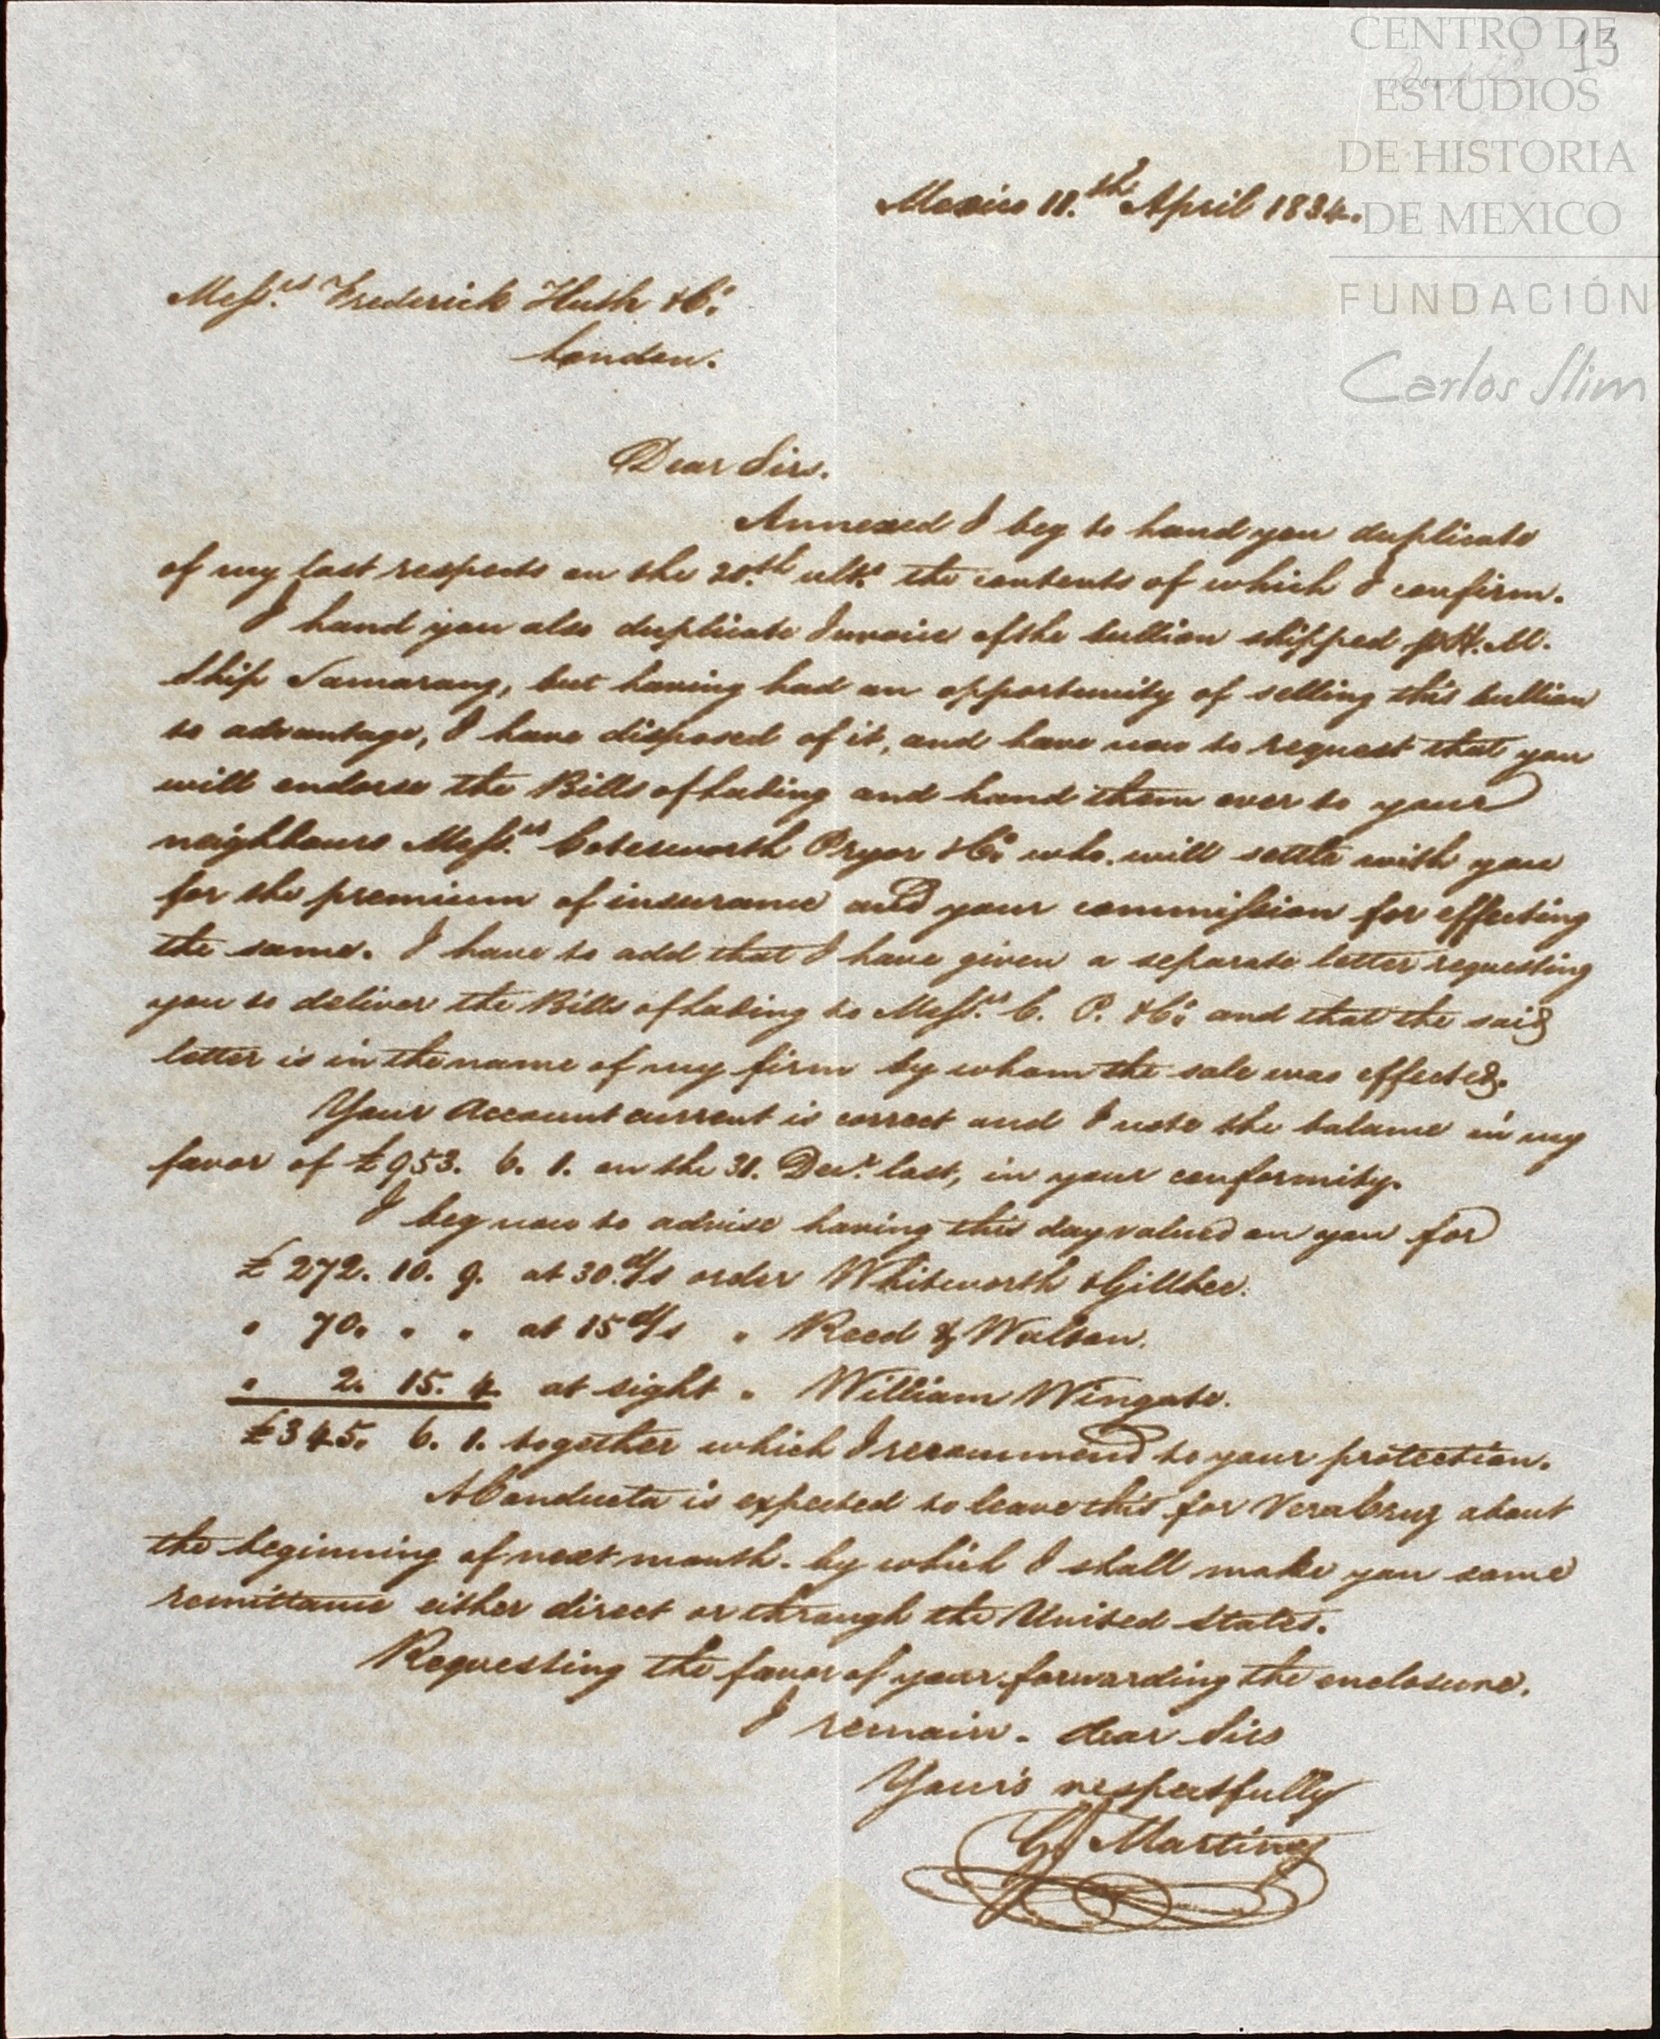 CENTRO DE
ESTUDIOS
DE HISTORIA
DE MEXICO
FUNDACIÓN
Carlos Slim
13
Mexico 11.th April 1834.
Messrs. Frederick Huth & Co.
London.
Dear Sirs.
Annexed I beg to hand you duplicate
of my last respects on the 20.th ulto. the contents of which I confirm.
I hand you also duplicate Invoice of the bullion shipped p H. M.
Ship Samarang, but having had an opportunity of selling this bullion
to advantage, I have disposed of it, and have now to request that you
will endorse the Bills of Lading and hand them over to your
neighbours Messrs. Cotesworth Pryor & Co. who will settle with you
for the premium of insurance and your commission for effecting
the same. I have to add that I have given a separate letter requesting
you to deliver the Bills of Lading to Messrs. C. P. & Co. and that the said
letter is in the name of my firm by whom the sale was effected.
Your Account current is correct and I note the balance in my
favor of £953. 6. 1. on the 31. Decr. last, in your conformity.
I beg now to advise having this day valued on you for
£ 272. 10. 9. at 30 d/s order Whitworth & Gillbee.
" 70. " " at 15 d/s " Reed & Watson.
" 2. 15. 4. at sight " William Wingate.
£345. 6. 1. together which I recommend to your protection.
A Conducta is expected to leave this for Vera Cruz about
the beginning of next month. by which I shall make you some
remittance either direct or through the United States.
Requesting the favor of your forwarding the enclosure.
I remain. dear Sirs
Your's respectfully
Martinez